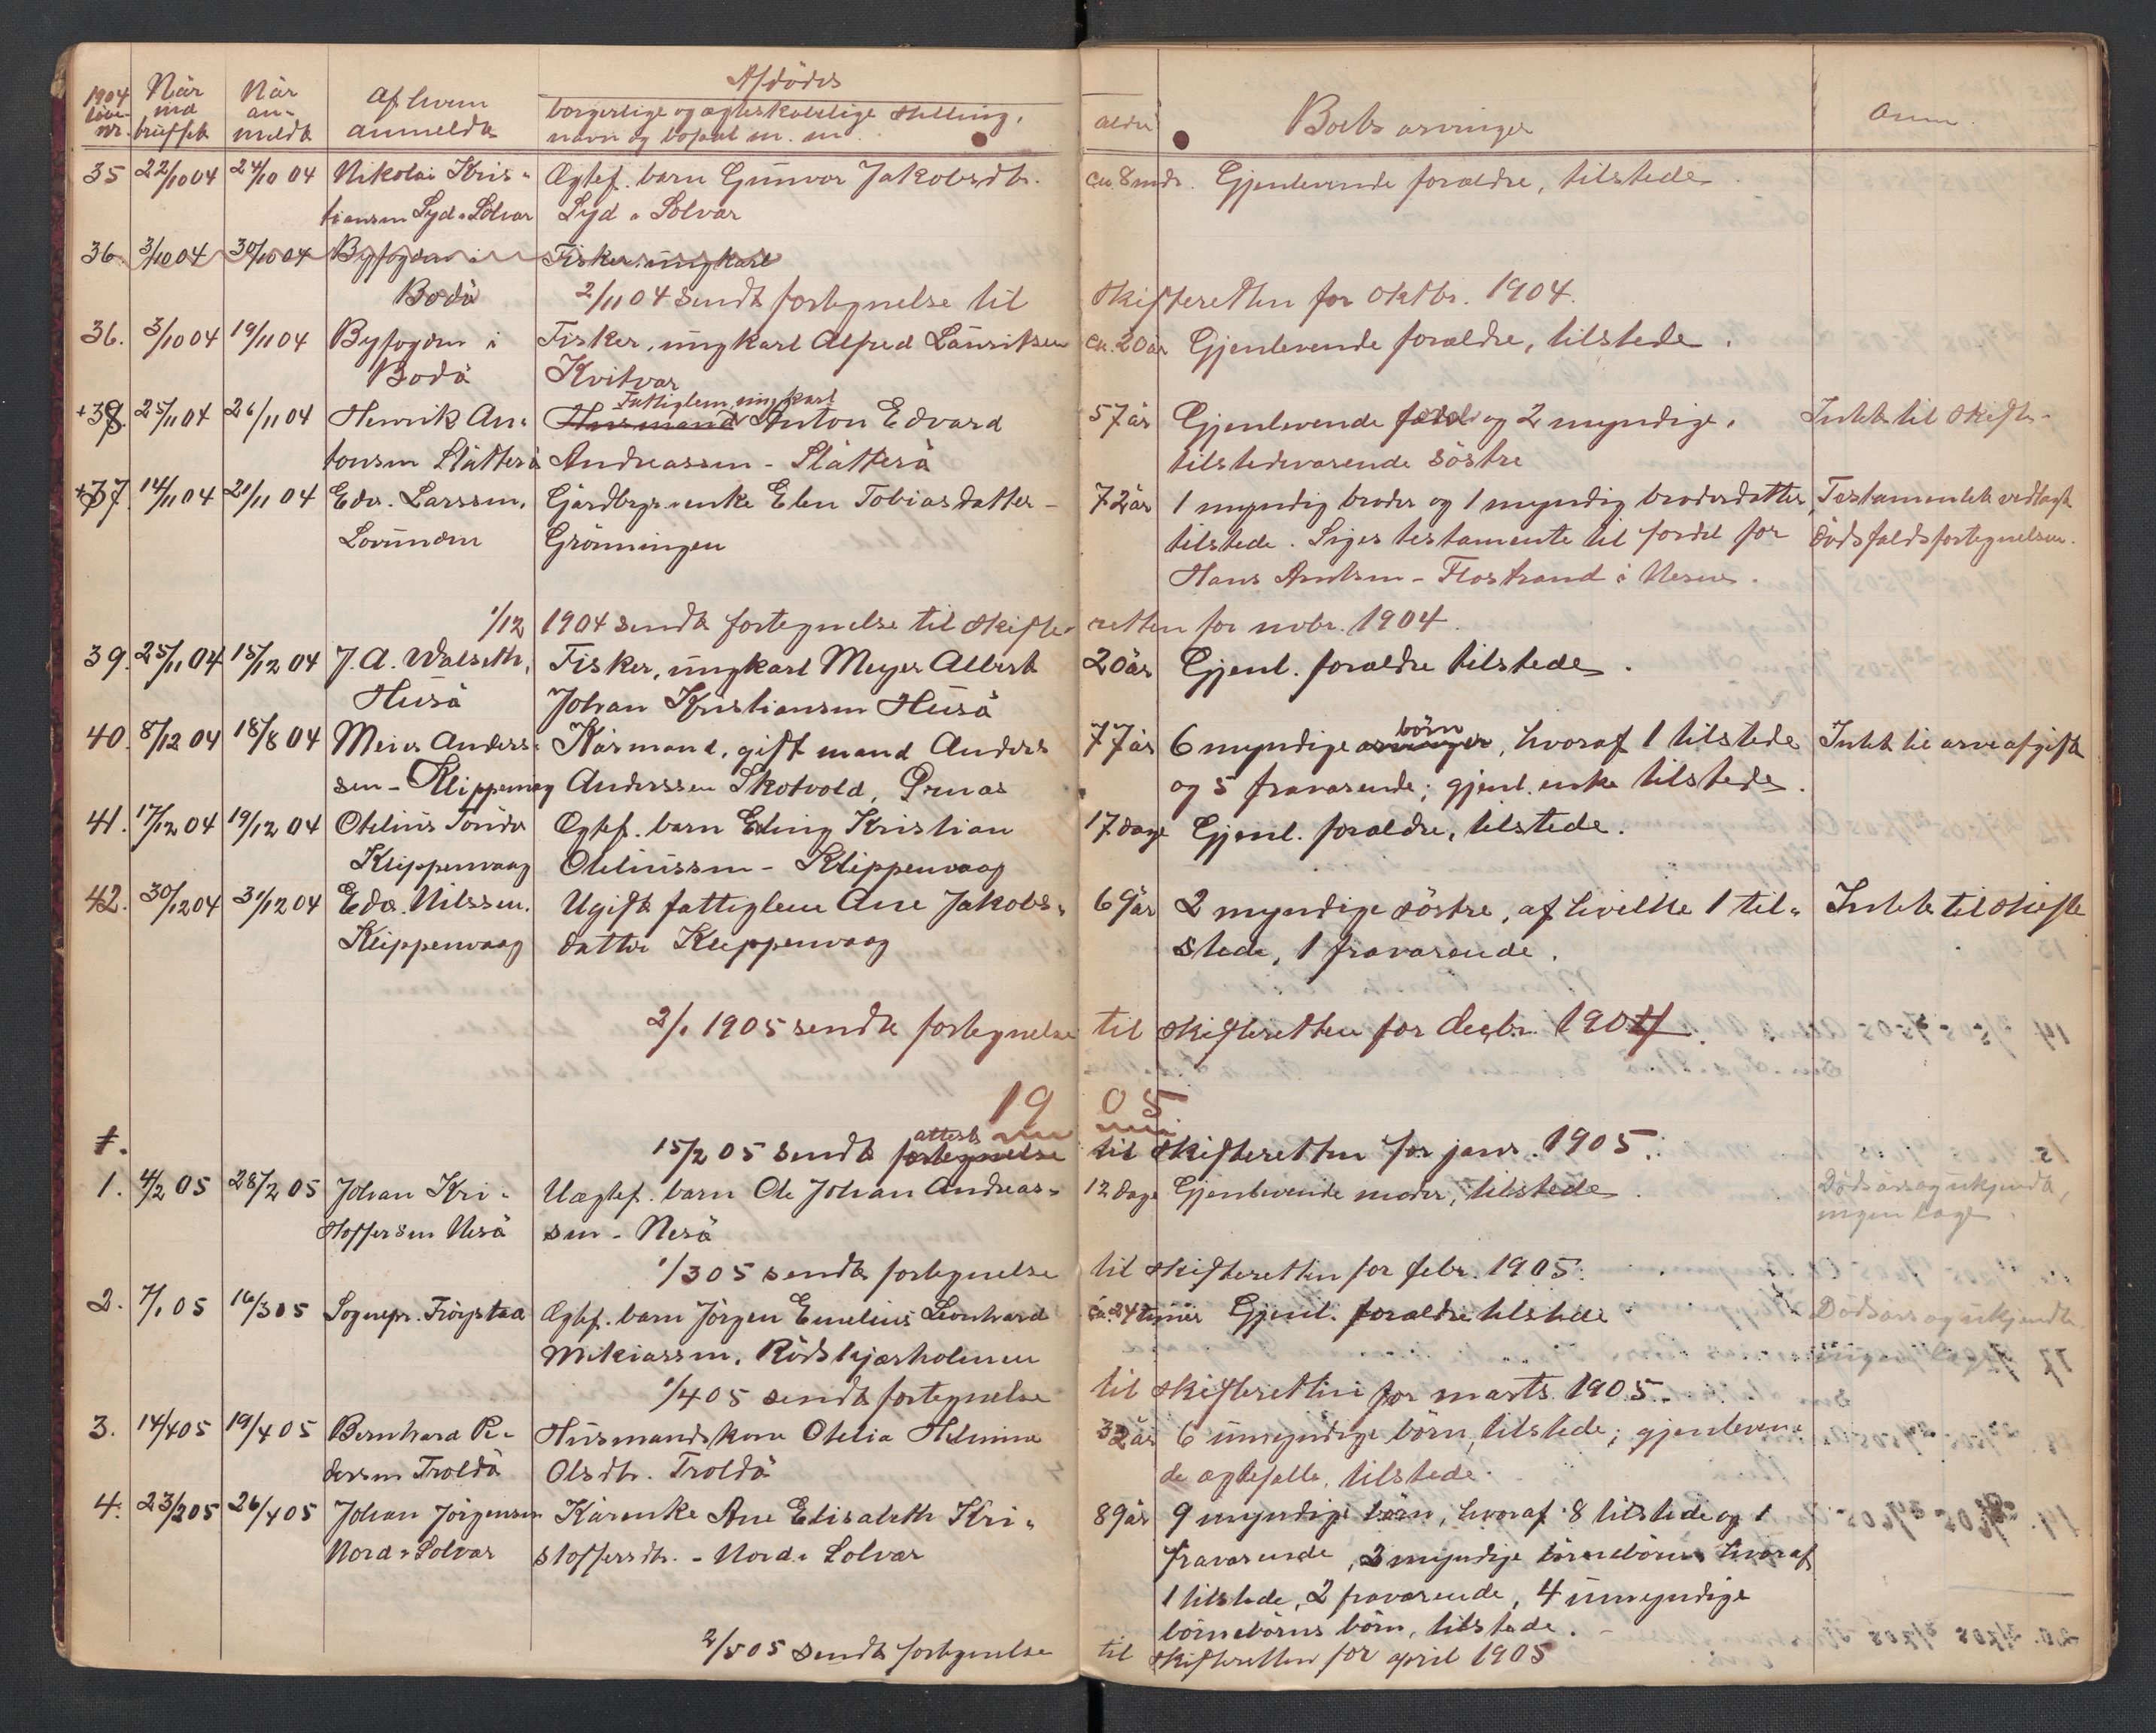 1904
löbe-
nr.
När
ind
truffet
När
an-
meldt
Af hvem
anmeldt
Afdödes
borgerlige og ægteskabelige stilling,
navn og bopæl m. m.
alder
Boets arvinger
Anm.
35 22/10 04 24/10 04 Nikolai Kris- Ægtef. barn Gunvor Jakobsdtr. ca. 8 mdr. Gjenlevende forældre, tilstede.
tiansen Syd-Solvær Syd-Solvær
36. 3/10 04 30/10 04 Byfogden i Fisker, ungkarl
Bodö 2/11 04 sendt fortegnelse til skifteretten for oktbr. 1904.
36. 3/10 04 19/11 04 Byfogden i Fisker, ungkarl Alfred Lauritsen ca. 20 år Gjenlevende forældre, tilstede.
Bodö Kvitvær
Fattiglem, ungkarl
+38. 25/11 04 26/11 04 Henrik An- Husmand Anton Edvard 57 år Gjenlevende og 2 myndige, Intet til skifte.
tonsen Slätterö Andreassen - Slätterö tilstedeværende söstre
+37. 14/11 04 21/11 04 Edv. Larssen, Gårdbrugerenke Elen Tobiasdatter - 72 år 1 myndig broder og 1 myndig broderdatter, Testamentet vedlagt
Lovunden Grönningen tilstede. Siges testamente til fordel for dödsfaldsfortegnelsen.
Hans Arntsen - Flostrand i Nesne.
1/12 1904 sendt fortegnelse til skifteretten for novbr. 1904.
39. 25/11 04 15/12 04 J. A. Walseth, Fisker, ungkarl Meyer Albert 20 år Gjenl. forældre tilstede.
Husö Johan Kristiansen Husö
börn
40. 8/12 04 18/8 04 Meier Anders- Kårmand, gift mand Anders 77 år 6 myndige arvinger, hvoraf 1 tilstede Intet til arveafgift
sen - Klippenvåg Anderssen Skotvold, og 5 fraværende; gjenl. enke tilstede.
41. 17/12 04 19/12 04 Otelius Tönder Ægtef. barn Eding Kristian 17 dage Gjenl. forældre, tilstede.
Klippenvaag Oteliussen - Klippenvaag
42. 30/12 04 31/12 04 Edv. Nilssen. Ugift fattiglem Ane Jakobs- 69 år 2 myndige söstre, af hvilke 1 til- Intet til skifte
Klippenvaag datter Klippenvaag stede, 1 fraværende.
2/1 1905 sendt fortegnelse til skifteretten for decbr. 1904.
1905
attest
1. 15/2 05 sendt fortegnelse til skifteretten for janr. 1905.
1. 4/2 05 28/2 05 Johan Kri- Uægtef. barn Ole Johan Andreas- 12 dage Gjenlevende moder, tilstede. Dödsårsag ukjendt,
stoffersen Nesö sen - Nesö ingen læge.
1/3 05 sendt fortegnelse til skifteretten for febr. 1905.
2. 7/1 05 16/3 05 Sognepr. Fröystad Ægtef. barn Jörgen Emelius Leonhard ca. 24 timer Gjenl. forældre tilstede Dödsårsag ukjendt
Mikiassen, Rödskjærholmen ingen læge
1/4 05 sendt fortegnelse til skifteretten for marts 1905.
3. 14/4 05 19/4 05 Bernhard Pe- Husmandskone Otelia Helmine 32 år 6 umyndige börn, tilstede; gjenleven-
dersen Troldö Olsdtr. Troldö de ægtefælle, tilstede.
4. 23/2 05 26/4 05 Johan Jörgensen Kårenke Ane Elisabeth Kri- 89 år 9 myndige börn, hvoraf 8 tilstede og 1
Nord-Solvær stoffersdtr. - Nord-Solvær fraværende, 3 myndige börnebörn hvoraf
1 tilstede, 2 fraværende, 4 umyndige
börnebörns börn, tilstede.
2/5 05 sendt fortegnelse til skifteretten for april 1905